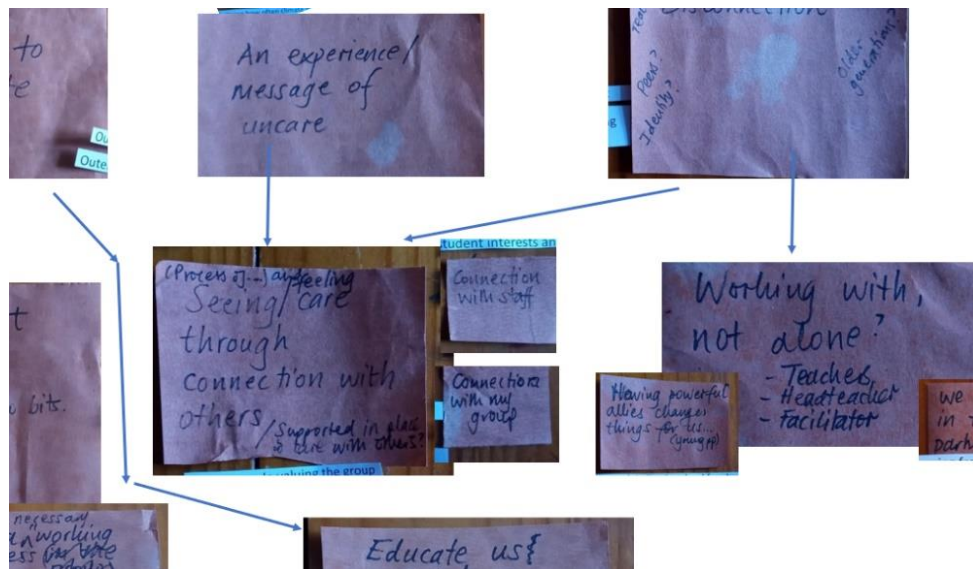 to
An experience/
message of
uncare
Disconnection
Peers?
Identity?
Older
generations?
Ou
Oute
tudent interests an
(Process of...) and
feeling
Seeing/care
through
connection with
others
/Supported in place
to care with others?
valuing the group
Connection
with staff
Connections
with my
group
Working with,
not alone?
- Teachers,
- Headteacher
- Facilitator
Having powerful
allies changes
things for us...
(young pp)
we
in
bits.
necessary
working
ess
Educate us{